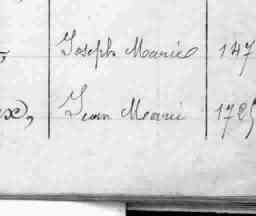 Joseph Marie 147
Jean Marie 172